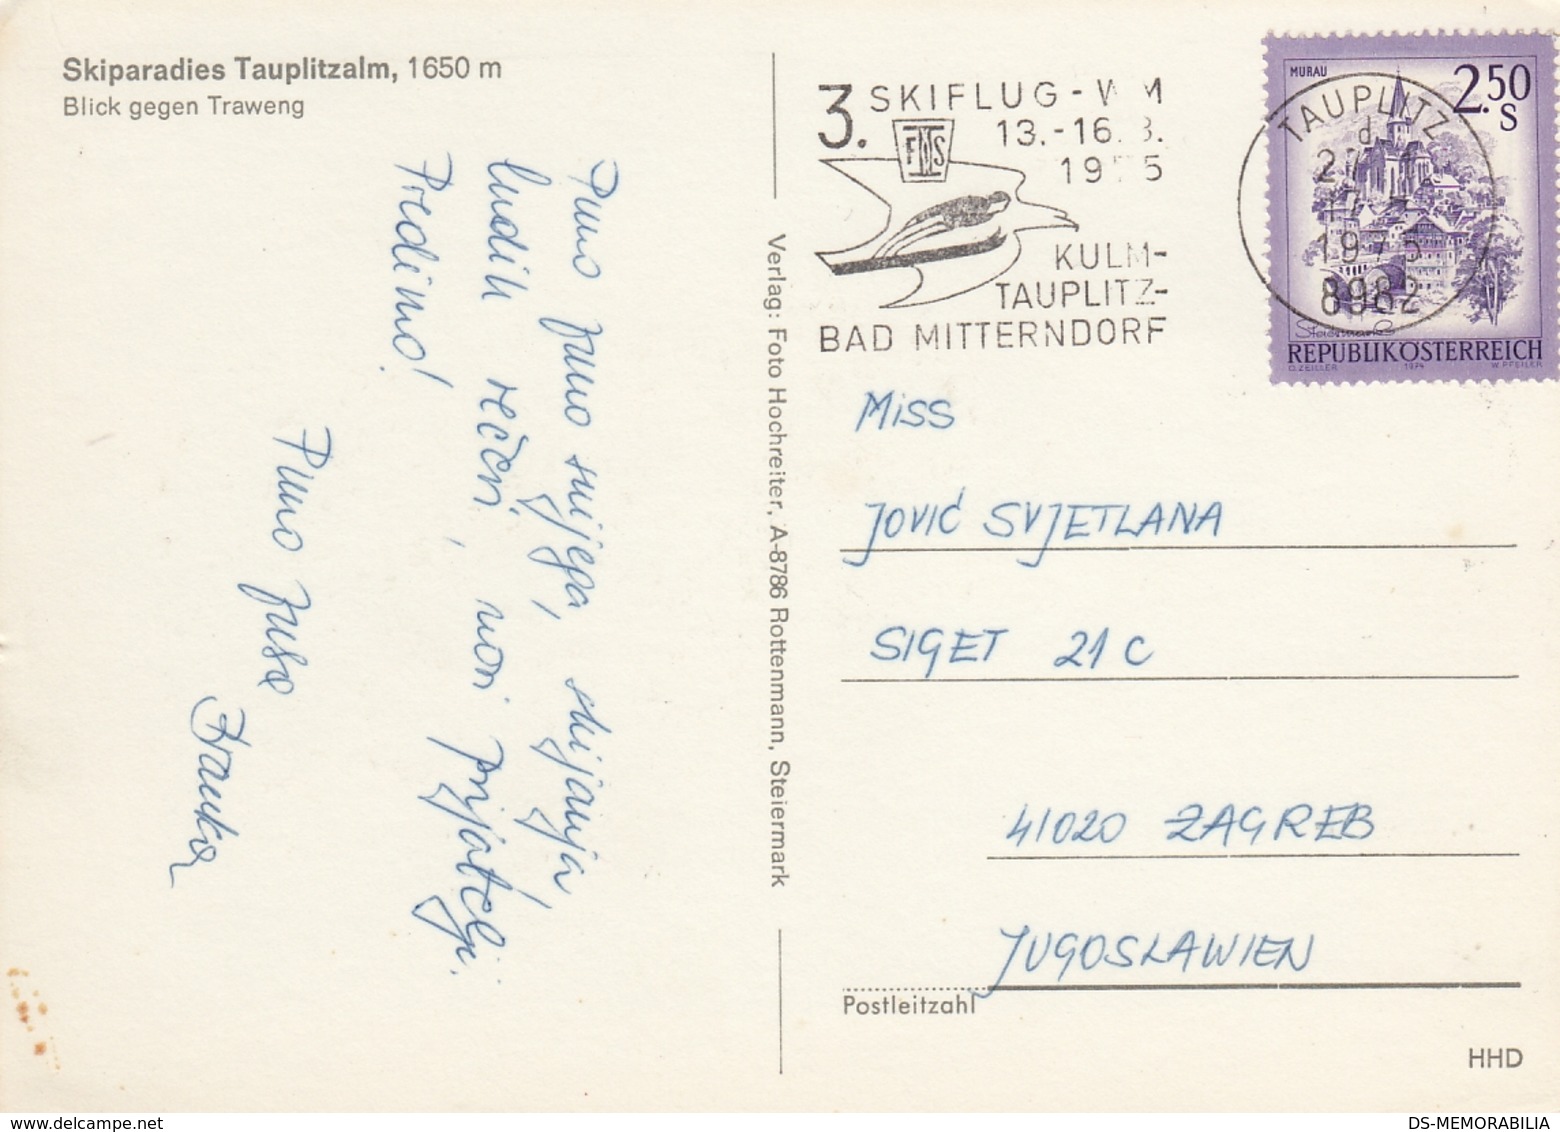 Skiparadies Tauplitzalm, 1650 m
Blick gegen Traweng
Puno puno snijega, skijanja,
ludih rečen, novi prijatelji.
Predivno!
Puno pusa
Branka
Verlag: Foto Hochreiter, A-8786 Rottenmann, Steiermark
3. SKIFLUG - WM
13.-16.3.
1975
FIS
KULM-
TAUPLITZ-
BAD MITTERNDORF
TAUPLITZ
d
1975
8982
MURAU
2.50
S
Steiermark
REPUBLIK ÖSTERREICH
O. ZEILLER 1974 W. PFEILER
Miss
JOVIĆ SVJETLANA
SIGET 21 C
41020 ZAGREB
JUGOSLAWIEN
Postleitzahl
HHD
DS-MEMORABILIA